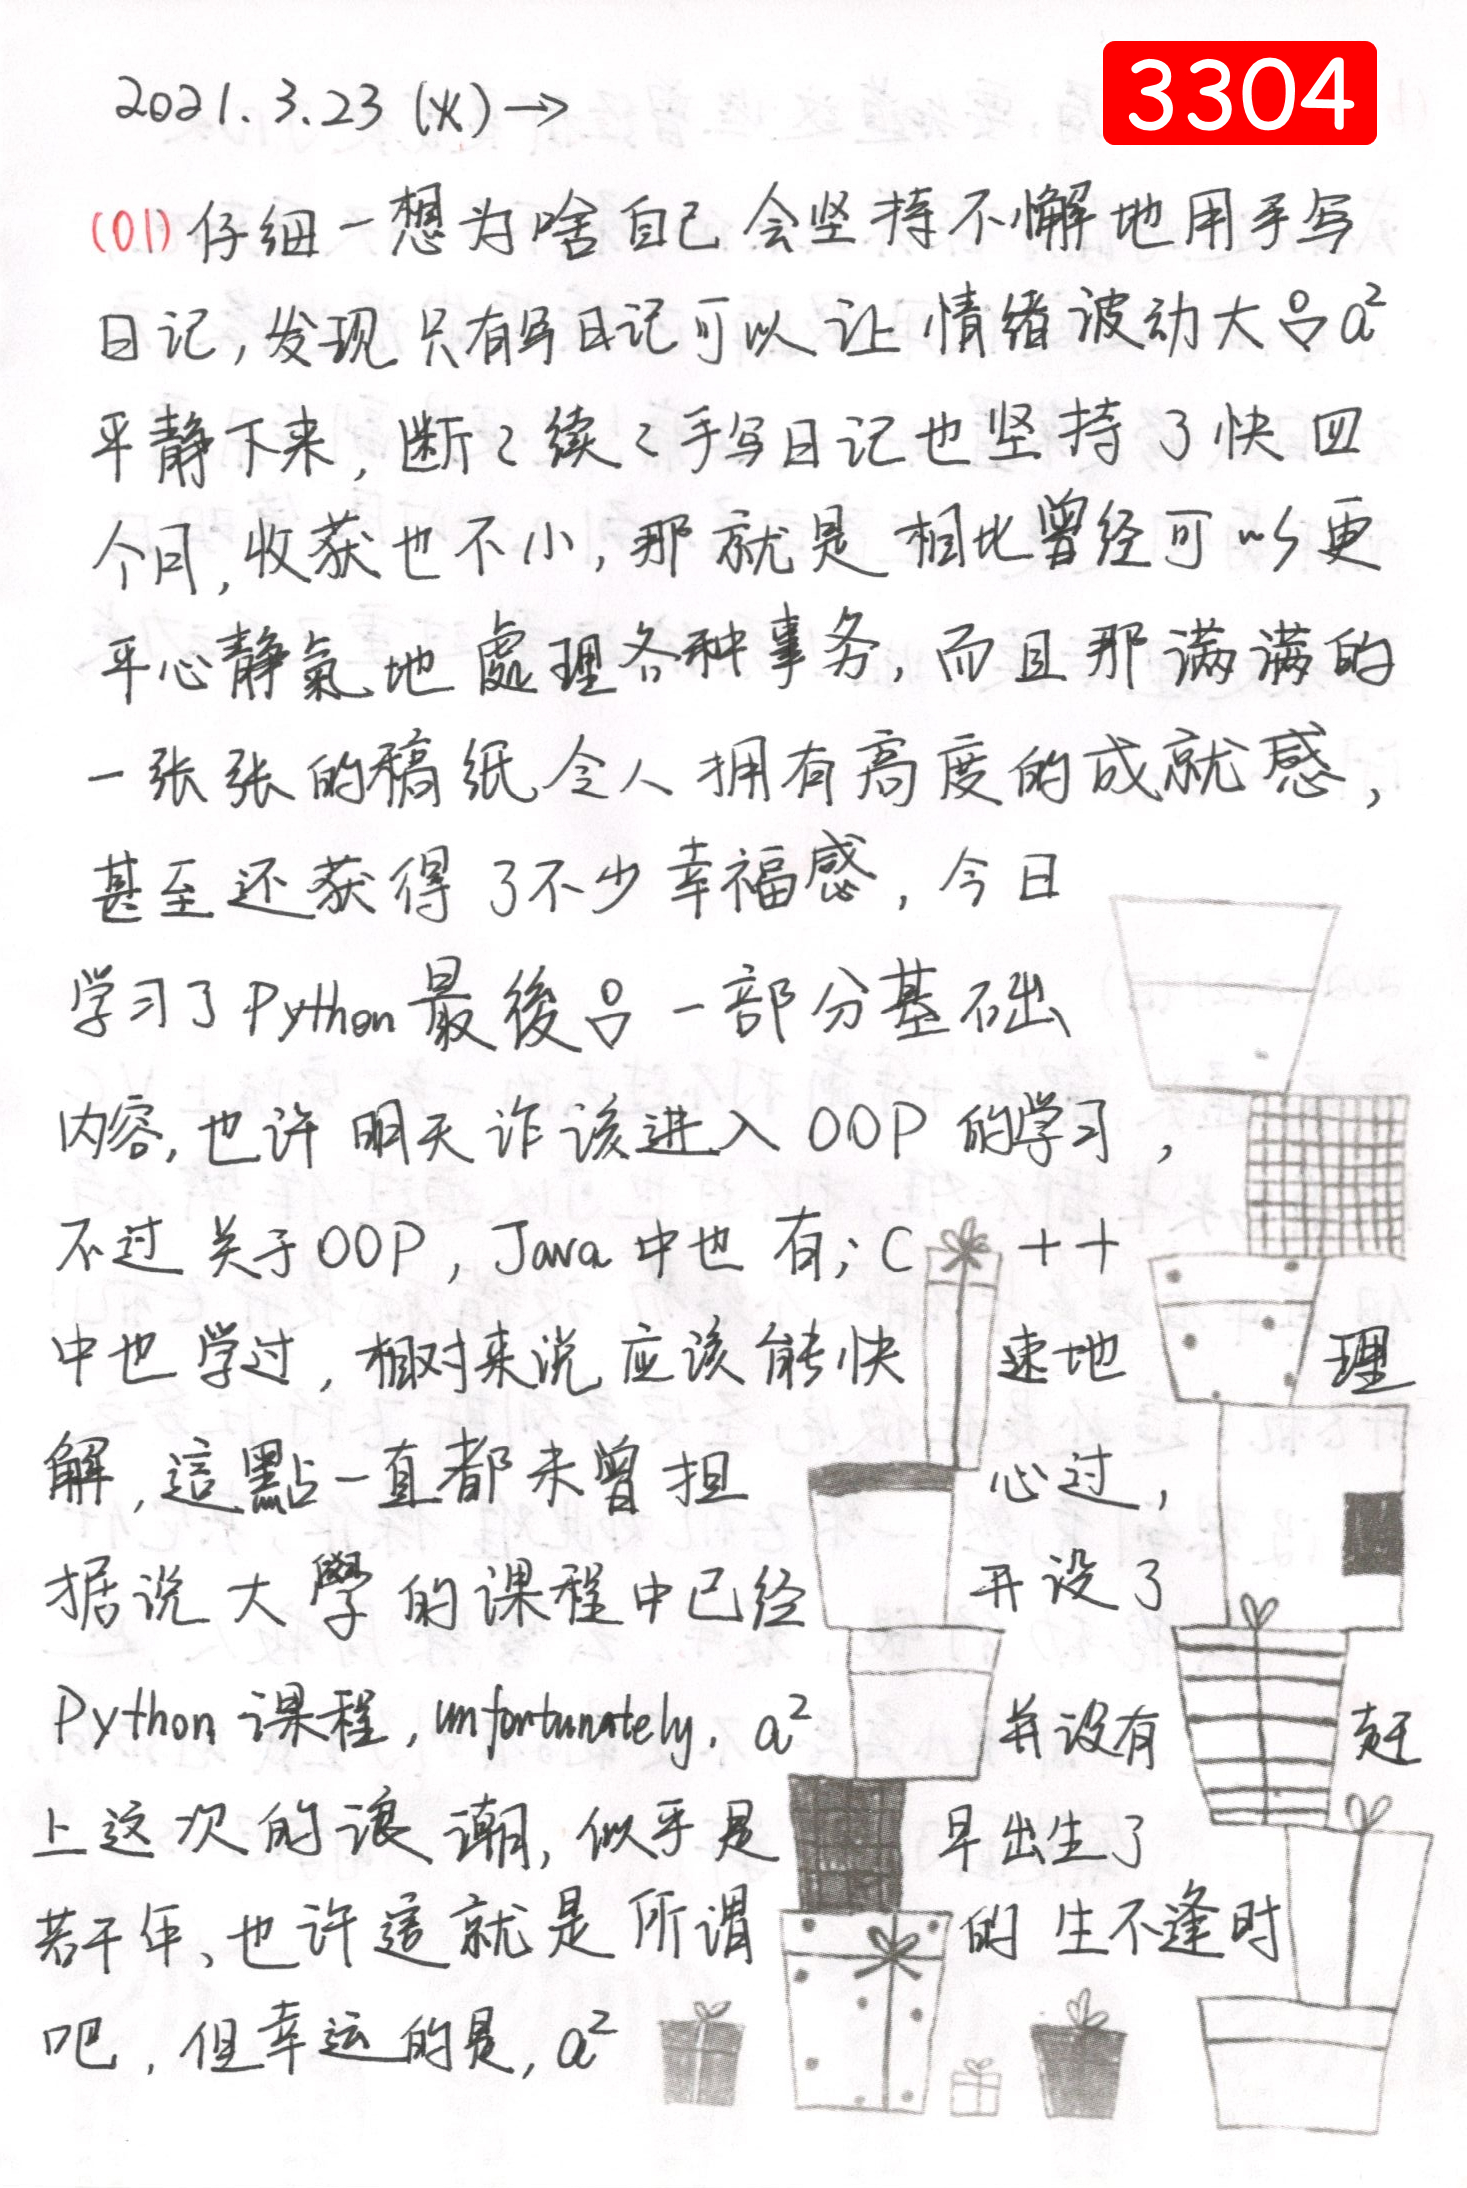 3304
2021.3.23 (火)→
(01) 仔细一想为啥自己会坚持不懈地用手写
日记,发现只有写日记可以让情绪波动大吕a²
平静下来,断々续々手写日记也坚持了快四
个月,收获也不小,那就是相比曾经可以更
平心静氣地處理各种事务,而且那满满的
一张张的稿纸令人拥有高度的成就感,
甚至还获得了不少幸福感,今日
学习了Python最後吕一部分基础
内容,也许明天诈该进入OOP的学习,
不过关于OOP,Java中也有;C++
中也学过,相对来说应该能快速地理
解,這點一直都未曾担心过,
据说大學的课程中已经开设了
Python课程,unfortunately,a²并没有赶
上这次的浪潮,似乎是早出生了
若干年、也许這就是所谓的生不逢时
吧,但幸运的是,a²